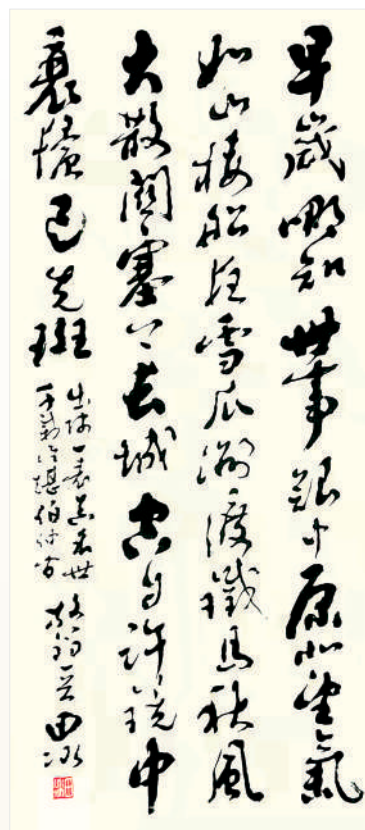 早歲哪知世事艱中原北望氣
如山樓船夜雪瓜洲渡鐵馬秋風
大散關塞上長城空自許鏡中
衰鬢已先斑
出師一表真名世
千載誰堪伯仲間